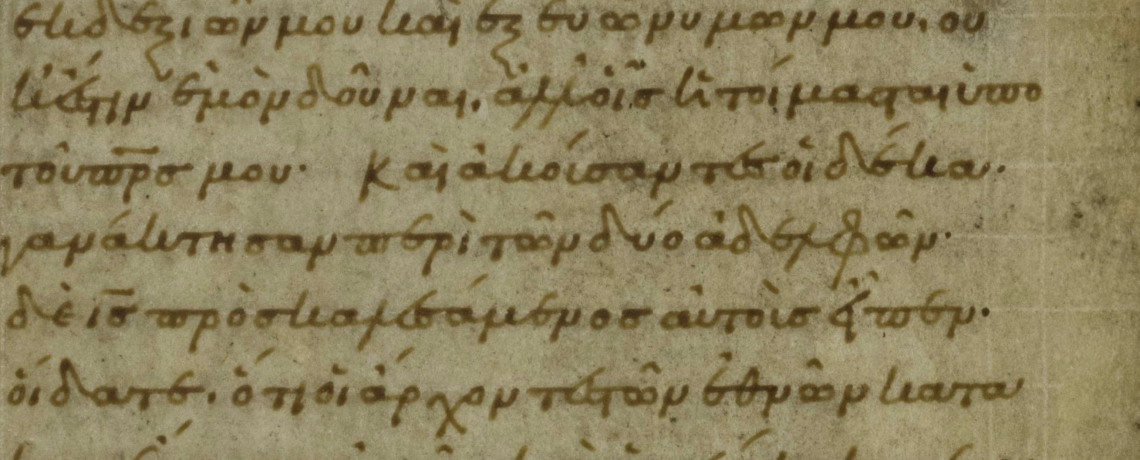 ἐκ δεξιῶν μου καὶ ἐξ εὐωνύμων μου, οὐ
κἔστιν ἐμὸν δοῦναι, ἀλλ' οἷς ἡτοίμασται ὑπὸ
τοῦ πρσ μου· Καὶ ἀκούσαντες οἱ δέκα·
γανάκτησαν περὶ τῶν δύο ἀδελφῶν·
δὲ ισ προσκαλεσάμενος αὐτοὺς εἶπεν·
οἴδατε, ὅτι οἱ ἄρχοντες τῶν ἐθνῶν κατα